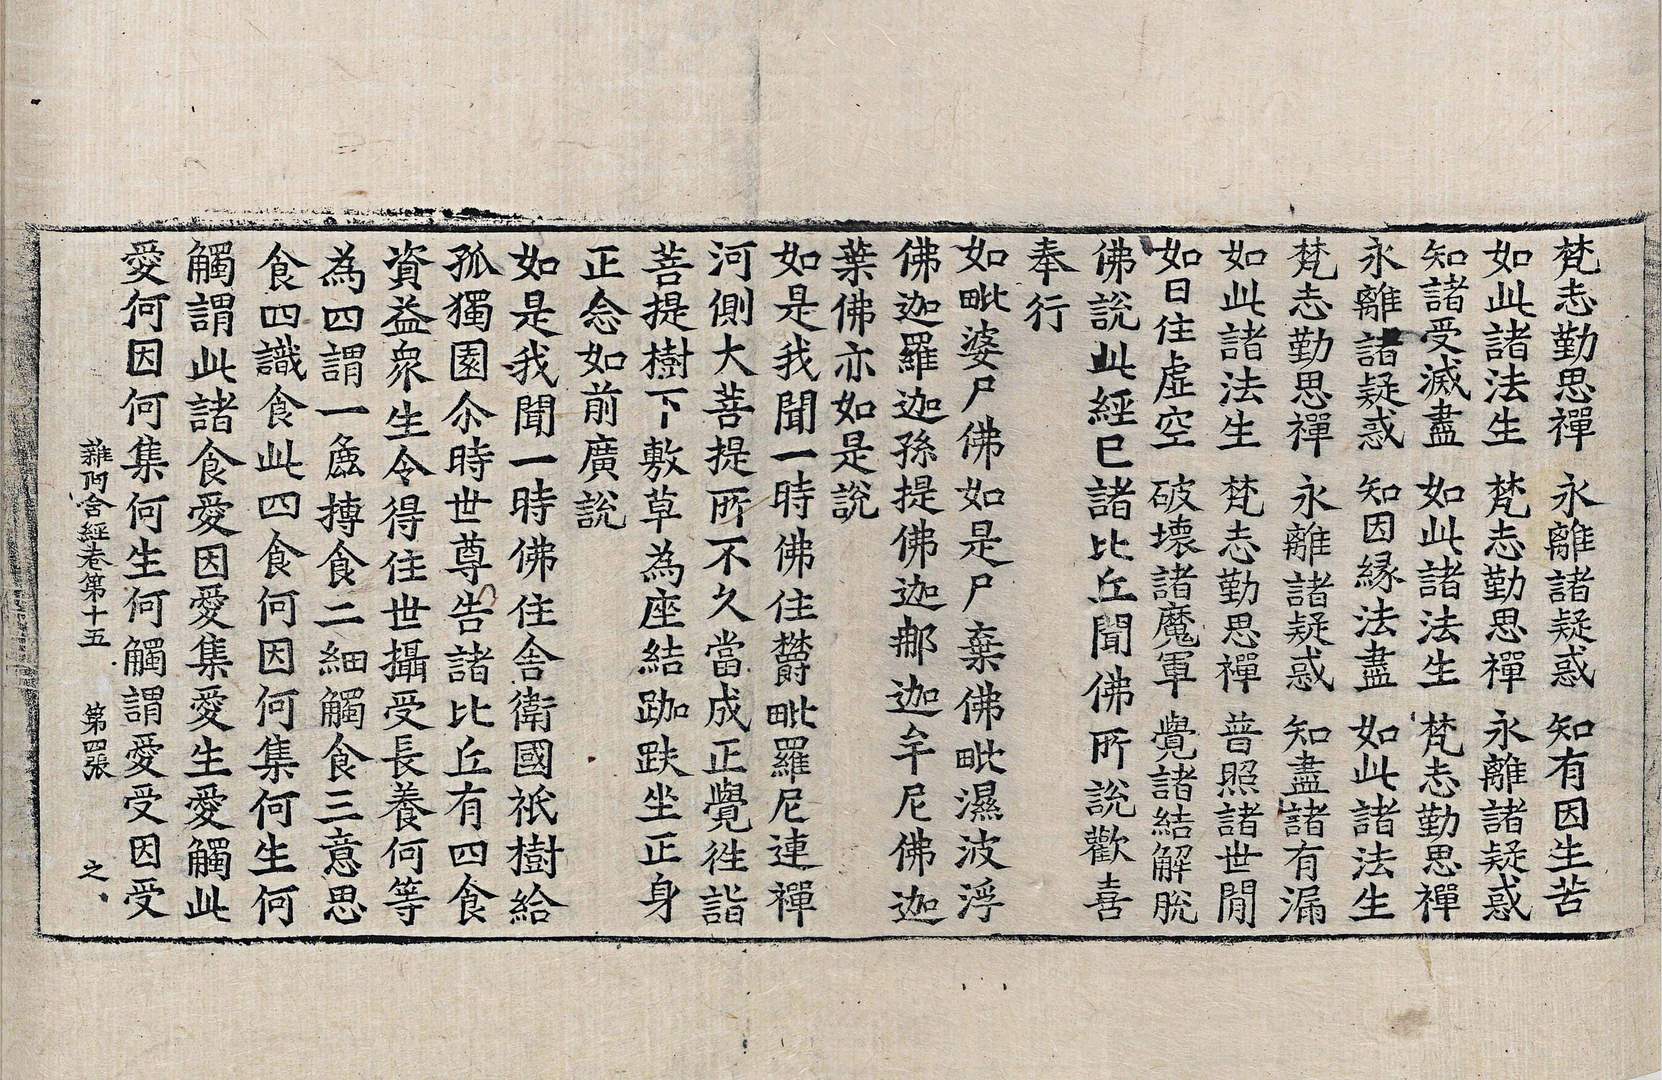 梵志勤思禪 永離諸疑惑 知有因生苦
如此諸法生 梵志勤思禪 永離諸疑惑
知諸受滅盡 如此諸法生 梵志勤思禪
永離諸疑惑 知因緣法盡 如此諸法生
梵志勤思禪 永離諸疑惑 知盡諸有漏
如此諸法生 梵志勤思禪 普照諸世閒
如日住虛空 破壞諸魔軍 覺諸結解脫
佛說此經已諸比丘聞佛所說歡喜
奉行
如毗婆尸佛如是尸棄佛毗濕波浮
佛迦羅迦孫提佛迦那迦牟尼佛迦
葉佛亦如是說
如是我聞一時佛住欝毗羅尼連禪
河側大菩提所不久當成正覺往詣
菩提樹下敷草為座結跏趺坐正身
正念如前廣說
如是我聞一時佛住舍衛國祇樹給
孤獨園尒時世尊告諸比丘有四食
資益衆生令得住世攝受長養何等
為四謂一麁摶食二細觸食三意思
食四識食此四食何因何集何生何
觸謂此諸食愛因愛集愛生愛觸此
愛何因何集何生何觸謂愛受因受
雜阿含經卷第十五 第四張 之